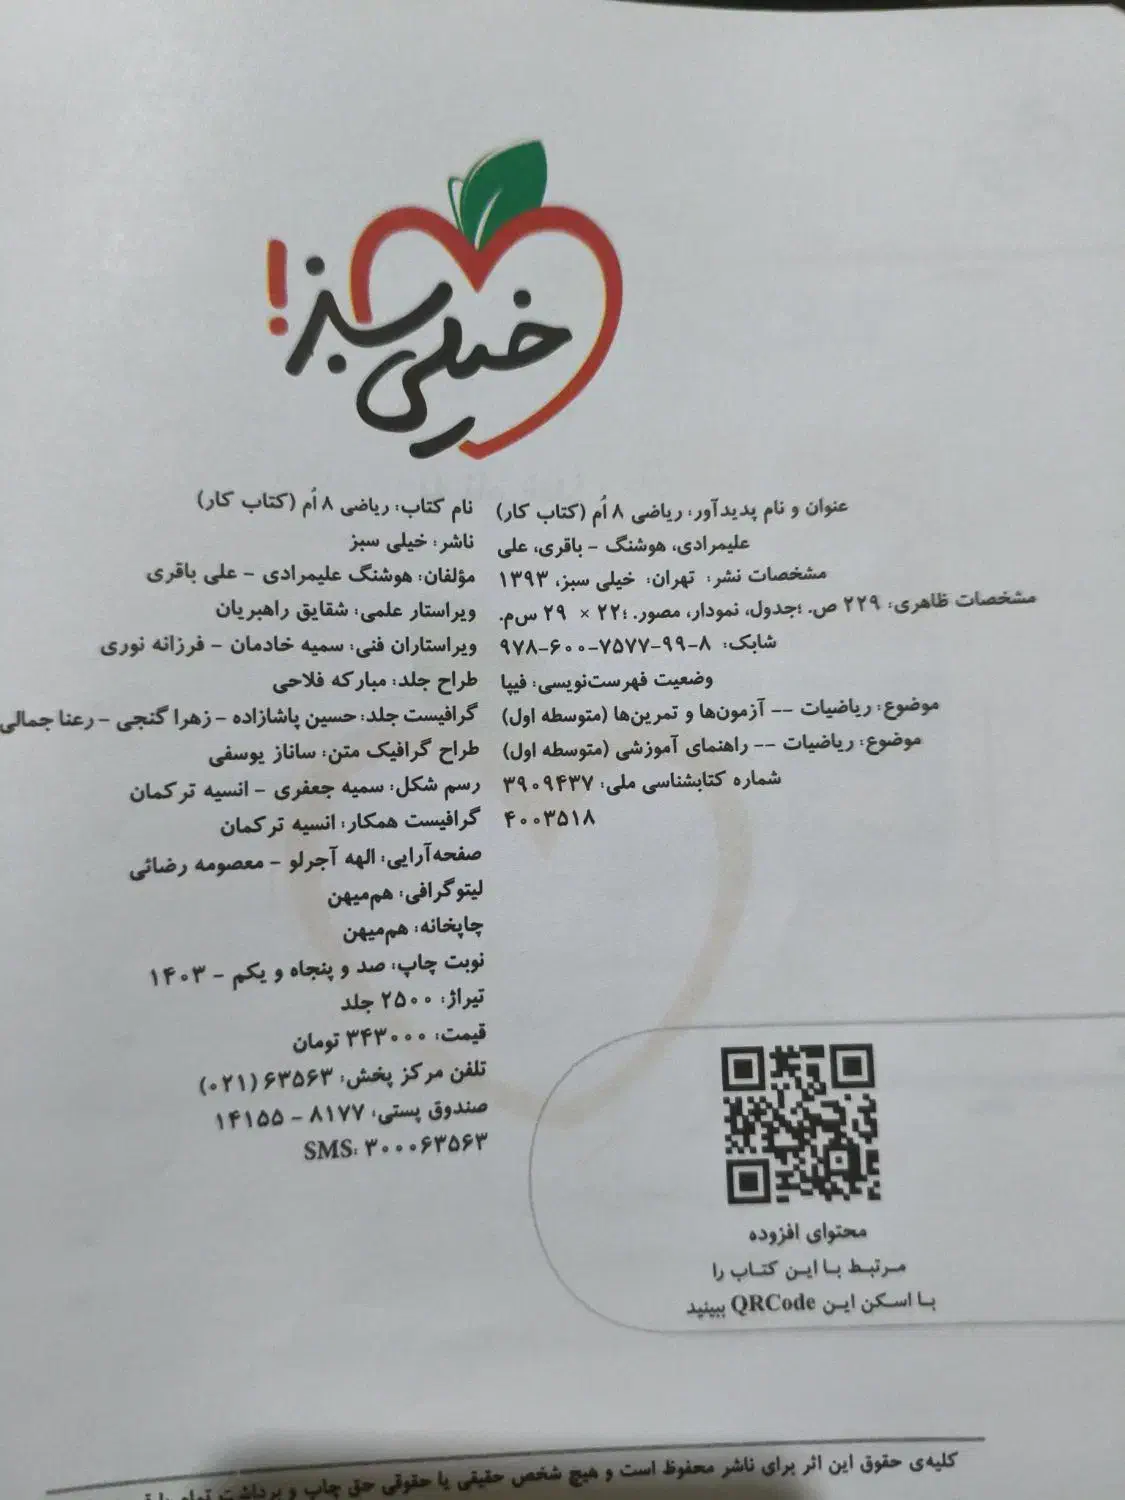 خیلی سبز!
عنوان و نام پدیدآور: ریاضی ۸ اُم (کتاب کار)
علیمرادی، هوشنگ - باقری، علی
مشخصات نشر: تهران: خیلی سبز، ۱۳۹۳
مشخصات ظاهری: ۲۲۹ ص. ؛جدول، نمودار، مصور. ؛۲۲ × ۲۹ س‌م.
شابک: ۸-۹۹-۷۵۷۷-۶۰۰-۹۷۸
وضعیت فهرست‌نویسی: فیپا
موضوع: ریاضیات -- آزمون‌ها و تمرین‌ها (متوسطه اول)
موضوع: ریاضیات -- راهنمای آموزشی (متوسطه اول)
شماره کتابشناسی ملی: ۳۹۰۹۴۳۷
۴۰۰۳۵۱۸
نام کتاب: ریاضی ۸ اُم (کتاب کار)
ناشر: خیلی سبز
مؤلفان: هوشنگ علیمرادی - علی باقری
ویراستار علمی: شقایق راهبریان
ویراستاران فنی: سمیه خادمان - فرزانه نوری
طراح جلد: مبارکه فلاحی
گرافیست جلد: حسین پاشازاده - زهرا گنجی - رعنا جمالی
طراح گرافیک متن: ساناز یوسفی
رسم شکل: سمیه جعفری - انسیه ترکمان
گرافیست همکار: انسیه ترکمان
صفحه‌آرایی: الهه آجرلو - معصومه رضائی
لیتوگرافی: هم‌میهن
چاپخانه: هم‌میهن
نوبت چاپ: صد و پنجاه و یکم - ۱۴۰۳
تیراژ: ۲۵۰۰ جلد
قیمت: ۳۴۳۰۰۰ تومان
تلفن مرکز پخش: ۶۳۵۶۳ (۰۲۱)
صندوق پستی: ۸۱۷۷ - ۱۴۱۵۵
SMS: ۳۰۰۰۶۳۵۶۳
محتوای افزوده
مرتبط با این کتاب را
با اسکن این QRCode ببینید
کلیه‌ی حقوق این اثر برای ناشر محفوظ است و هیچ شخص حقیقی یا حقوقی حق چاپ و برداشت تمام یا